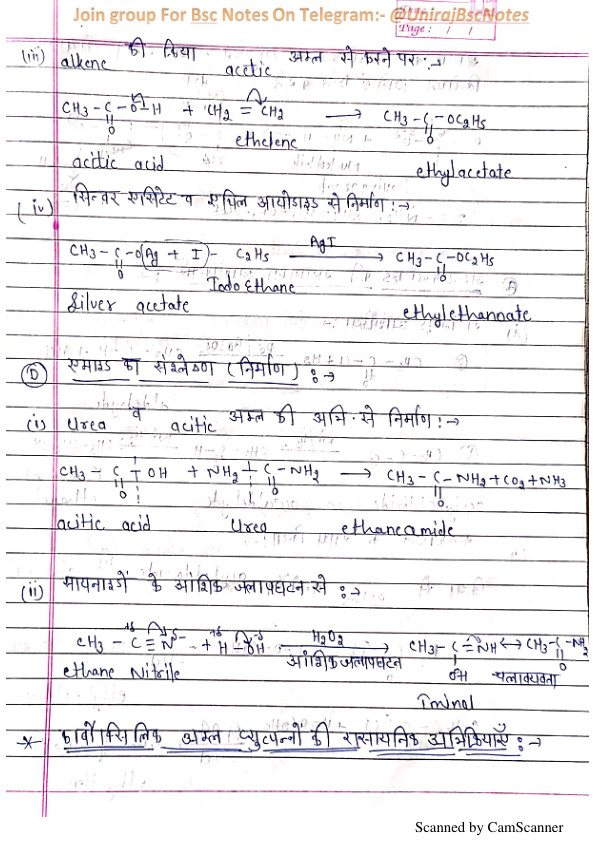 Join group For Bsc Notes On Telegram:- @UnirajBscNotes
Page: / /
(iii) alkene की क्रिया acetic अम्ल से करने पर :→
CH3-C-O-H + CH2=CH2 ⟶ CH3-C-OC2H5
|| ||
O O
ethelene
acitic acid ethylacetate
(iv) सिल्वर एसिटेट व एथिल आयोडाइड से निर्माण :→
CH3-C-O(Ag + I)-C2H5 AgI ⟶ CH3-C-OC2H5
|| ||
O O
Indo Ethane
Silver acetate ethylethannate
(D) एमाइड का संश्लेषण (निर्माण) :→
(i) Urea व acitic अम्ल की अभि. से निर्माण :→
CH3-C-OH + NH2-C-NH2 ⟶ CH3-C-NH2+CO2+NH3
|| || ||
O O O
acitic acid Urea ethaneamide
(ii) सायनाइडों के आंशिक जलापघटन से :→
CH3-C≡N + H-OH H2O2 ⟶ CH3-C=NH ↔ CH3-C-NH2
आंशिक जलापघटन
OH चलावयवता O
ethane Nitrile
Iminol
* कार्बोक्सिलिक अम्ल व्युत्पन्नों की रासायनिक अभिक्रियाएँ :→
Scanned by CamScanner